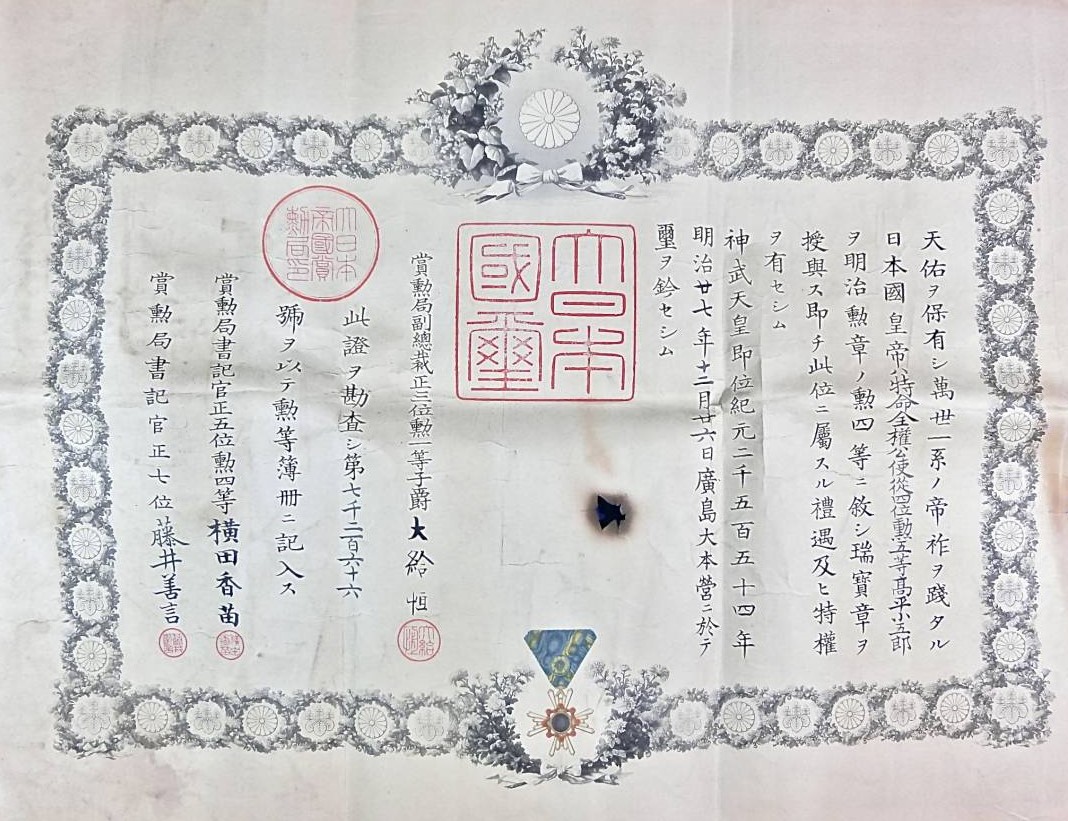 天佑ヲ保有シ萬世一系ノ帝祚ヲ踐タル
日本國皇帝ハ特命全權公使從四位勳五等高平小五郎
ヲ明治勲章ノ勲四等ニ敘シ瑞寶章ヲ
授與ス即チ此位ニ屬スル禮遇及ヒ特權
ヲ有セシム
神武天皇即位紀元二千五百五十四年
明治廿七年十二月廿六日廣島大本營ニ於テ
璽ヲ鈐セシム
大日本
國璽
賞勲局副總裁正三位勲一等子爵大給恒
此證ヲ勘査シ第七千二百六十六
號ヲ以テ勲等簿册ニ記入ス
大日本
帝國賞
勲局印
賞勲局書記官正五位勲四等横田香苗
賞勲局書記官正七位藤井善言